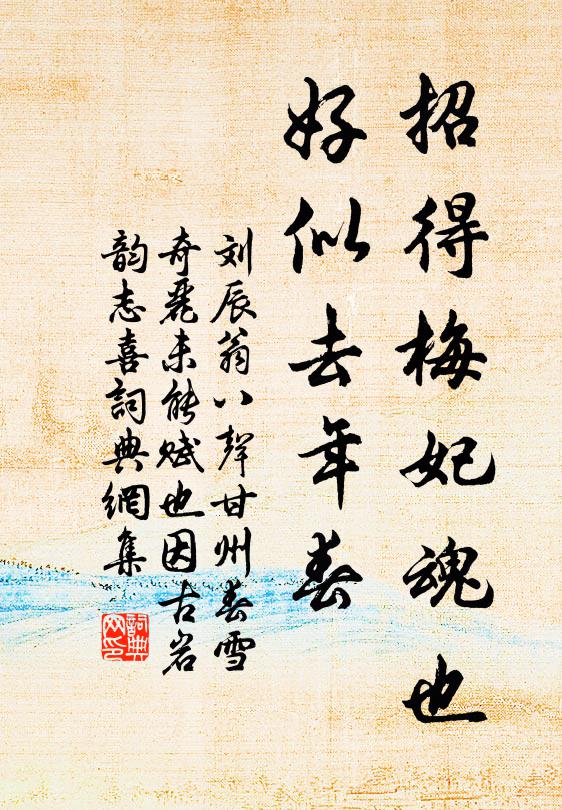 招得梅妃魂也
好似去年春
刘辰翁八聲甘州春雪
奇麗未能赋也因古岩
韵志喜詞典網集
詞典
网印